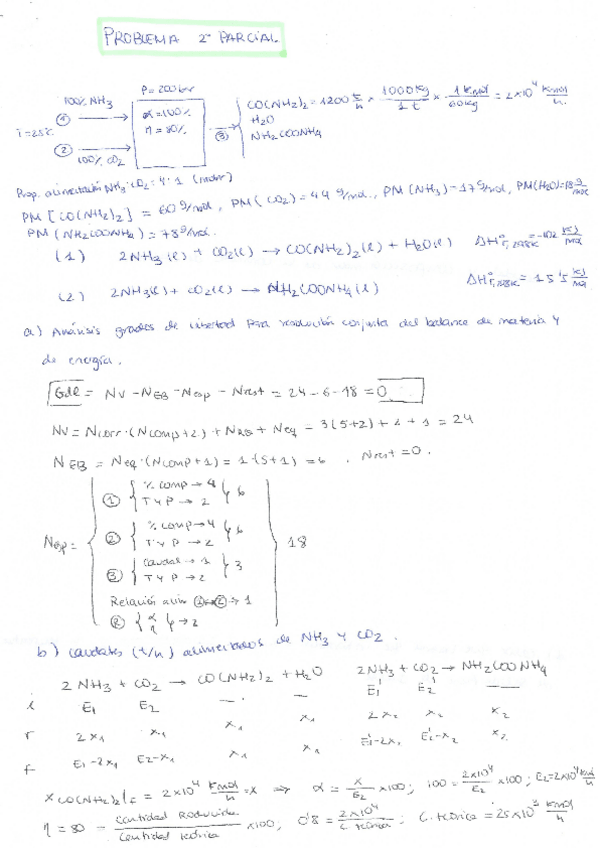 PROBLEMA 2º PARCIAL
P = 200 bar
100% NH3
α = 100%
η = 80%
T = 25ºC
100% CO2
① ② ③
CO(NH2)2 = 1200 t/h × 1000 kg / 1 t × 1 Kmol / 60 kg = 2×10^4 Kmol/h
H2O
NH2COONH4
Prop. alimentación NH3:CO2 = 4:1 (molar)
PM [CO(NH2)2] = 60 g/mol, PM (CO2) = 44 g/mol, PM (NH3) = 17 g/mol, PM(H2O) = 18 g/mol
PM (NH2COONH4) = 78 g/mol
(1) 2NH3(l) + CO2(l) → CO(NH2)2(l) + H2O(l) ΔHºr,298K = -102 KJ/mol
(2) 2NH3(l) + CO2(l) → NH2COONH4(l) ΔHºr,298K = 15'5 KJ/mol
a) Análisis grados de libertad para resolución conjunta del balance de materia y
de energía.
Gdl = Nv - NEB - Nesp - Nrest = 24 - 6 - 18 = 0
Nv = Ncorr·(Ncomp+2) + NRQ + Neq = 3(5+2) + 2 + 1 = 24
NEB = Neq·(Ncomp+1) = 1·(5+1) = 6. Nrest = 0.
Nesp = 18
① { % comp → 4
T y P → 2 } 6
② { % comp → 4
T y P → 2 } 6
③ { caudal → 1
T y P → 2 } 3
Relación alim ①②→ 1
{ α
η } → 2
b) caudales (t/h) alimentados de NH3 y CO2.
2 NH3 + CO2 → CO(NH2)2 + H2O 2NH3 + CO2 → NH2COONH4
i E1 E2 — — E1' E2' —
r 2x1 x1 x1 x1 2x2 x2 x2
f E1-2x1 E2-x1 x1 x1 E1'-2x2 E2'-x2 x2
xCO(NH2)2 = 2×10^4 Kmol/h = x ⇒ α = x/E2 ×100; 100 = 2×10^4/E2 ×100; E2 = 2×10^4 Kmol/h
η = 80 = Cantidad Producida / Cantidad teórica ×100; 0'8 = 2×10^4 / C. teórica; C. teórica = 25×10^3 Kmol/h